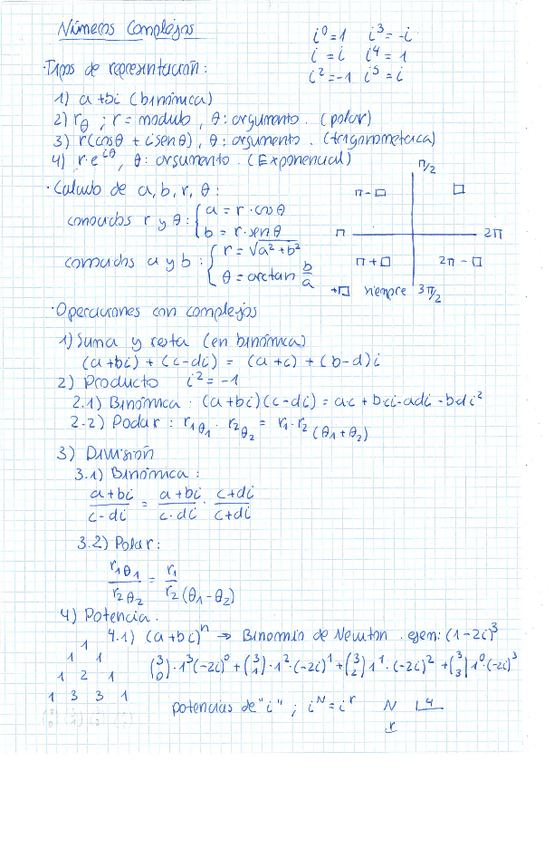 Números Complejos
i⁰=1 i³=-i
i=i i⁴=1
i²=-1 i⁵=i
·Tipos de representación:
1) a+bi (binómica)
2) r_θ ; r = modulo, θ: argumento. (polar)
3) r(cosθ + isenθ), θ: argumento. (trigonométrica)
4) r·e^iθ, θ: argumento. (Exponencial)
·Calculo de a, b, r, θ:
conocidos r y θ: { a = r·cosθ
b = r·senθ
conocidos a y b: { r = √(a²+b²)
θ = arctan b/a
π/2
π-□ □
π 2π
π+□ 2π-□
+□ siempre 3π/2
·Operaciones con complejos
1) Suma y resta (en binómica)
(a+bi) + (c-di) = (a+c) + (b-d)i
2) Producto i²=-1
2.1) Binómica: (a+bi)(c-di) = ac+bci-adi-bdi²
2.2) Podar: r₁_θ₁ · r₂_θ₂ = r₁·r₂ (θ₁+θ₂)
3) División
3.1) Binómica:
(a+bi)/(c-di) = (a+bi)/(c-di) · (c+di)/(c+di)
3.2) Polar:
r₁_θ₁/r₂_θ₂ = r₁/r₂ (θ₁-θ₂)
4) Potencia.
4.1) (a+bi)ⁿ → Binomio de Newton. ejem: (1-2i)³
1
1 1
1 2 1
1 3 3 1
(3 0)·1³(-2i)⁰ + (3 1)·1²·(-2i)¹ + (3 2)1¹·(-2i)² + (3 3)1⁰(-2i)³
potencias de "i" ; i^N = i^r N |4
r